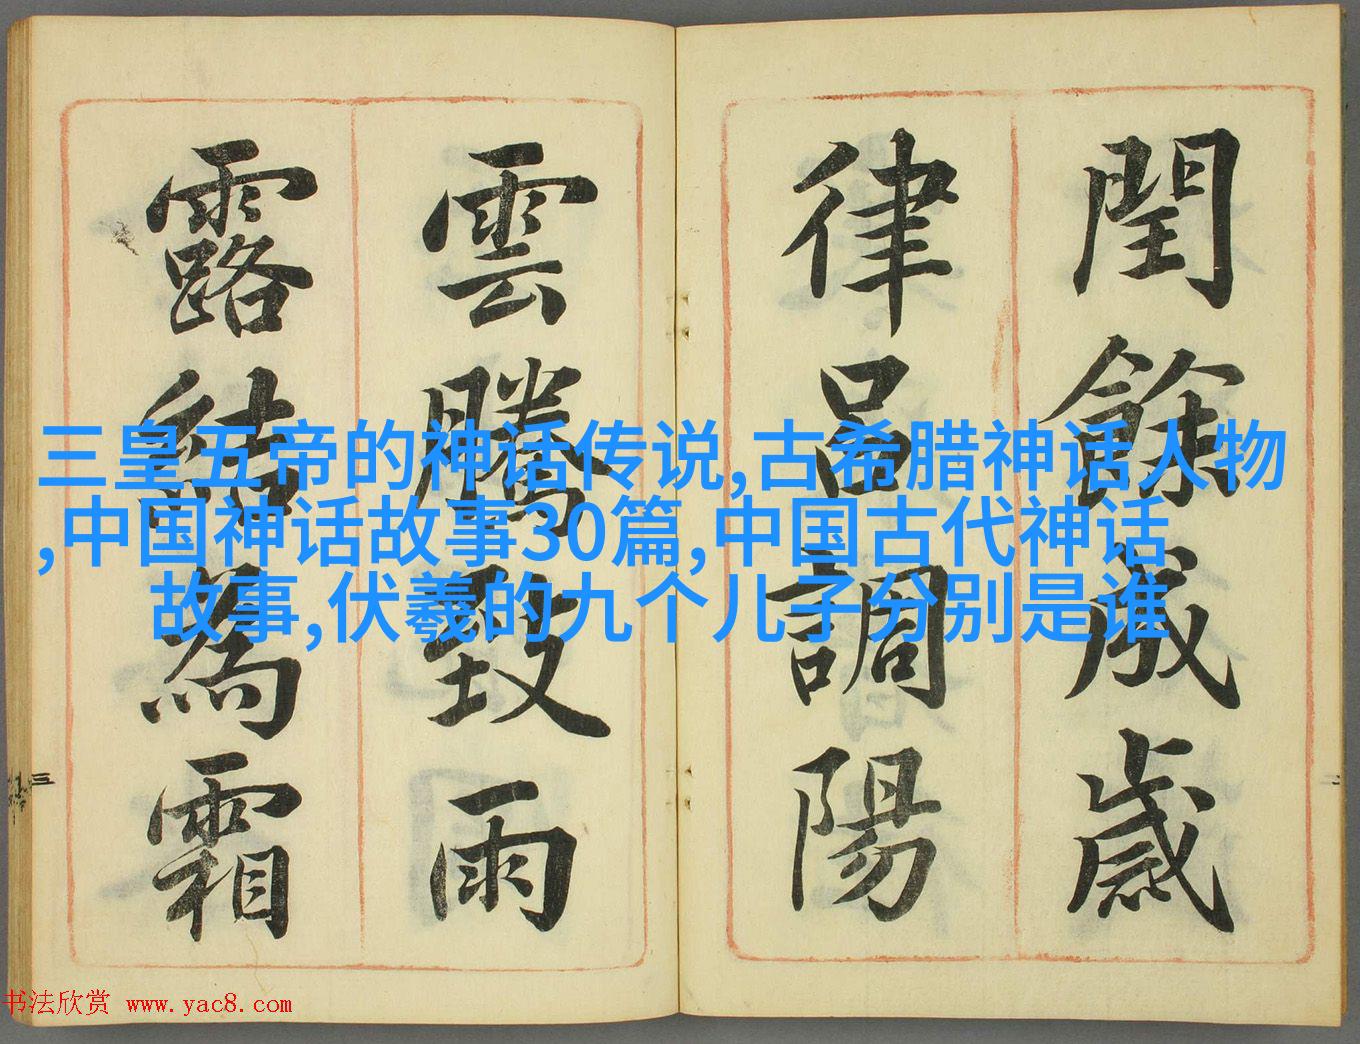 閏餘成歲
律呂調陽
雲騰致雨
露結爲霜
三皇五帝的神话传说,古希腊神话人物
,中国神话故事30篇,中国古代神话
故事,伏羲的九个儿子分别是谁
三
二
书法欣赏 www.yac8.com